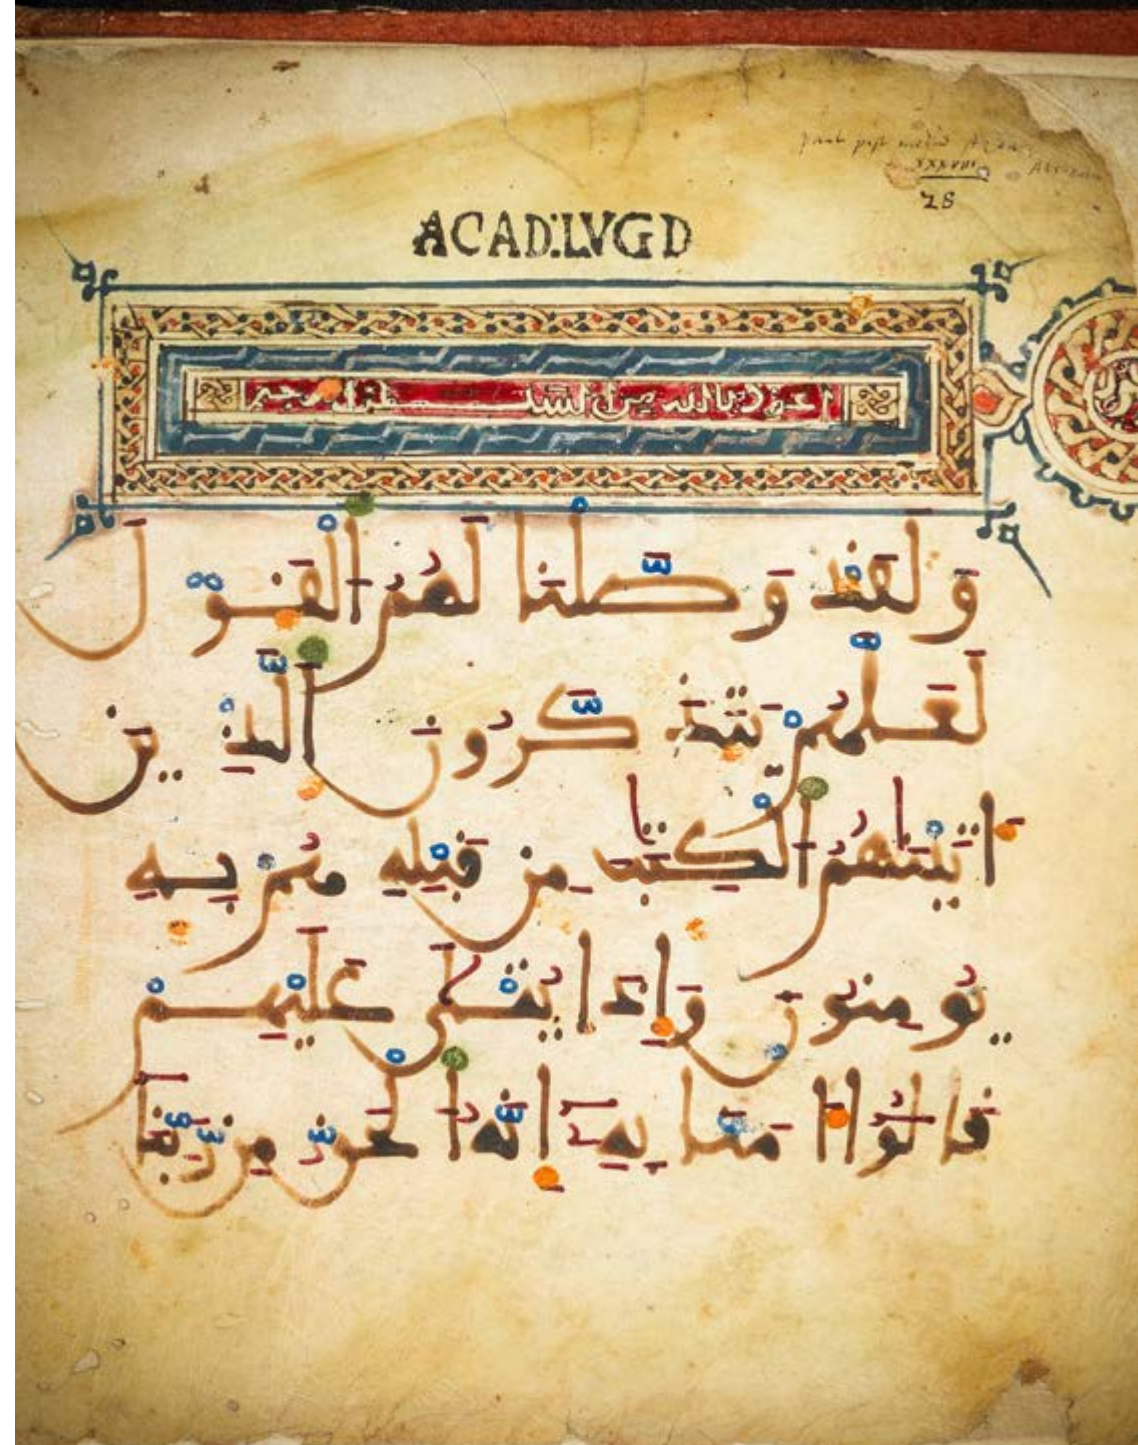 XXXVIII
28
ACAD:LVGD
اعوذ بالله من الشيطن الرجيم
وَلَقَدْ وَصَّلْنَا لَهُمُ الْقَوْلَ
لَعَلَّهُمْ يَتَذَكَّرُونَ الَّذِينَ
اتَيْنَاهُمُ الْكِتَابَ مِن قَبْلِهِ هُم بِهِ
يُومِنُونَ وَإِذَا يُتْلَى عَلَيْهِمْ
قَالُوا ءَامَنَّا بِهِ إِنَّهُ الْحَقُّ مِن رَّبِّنَا